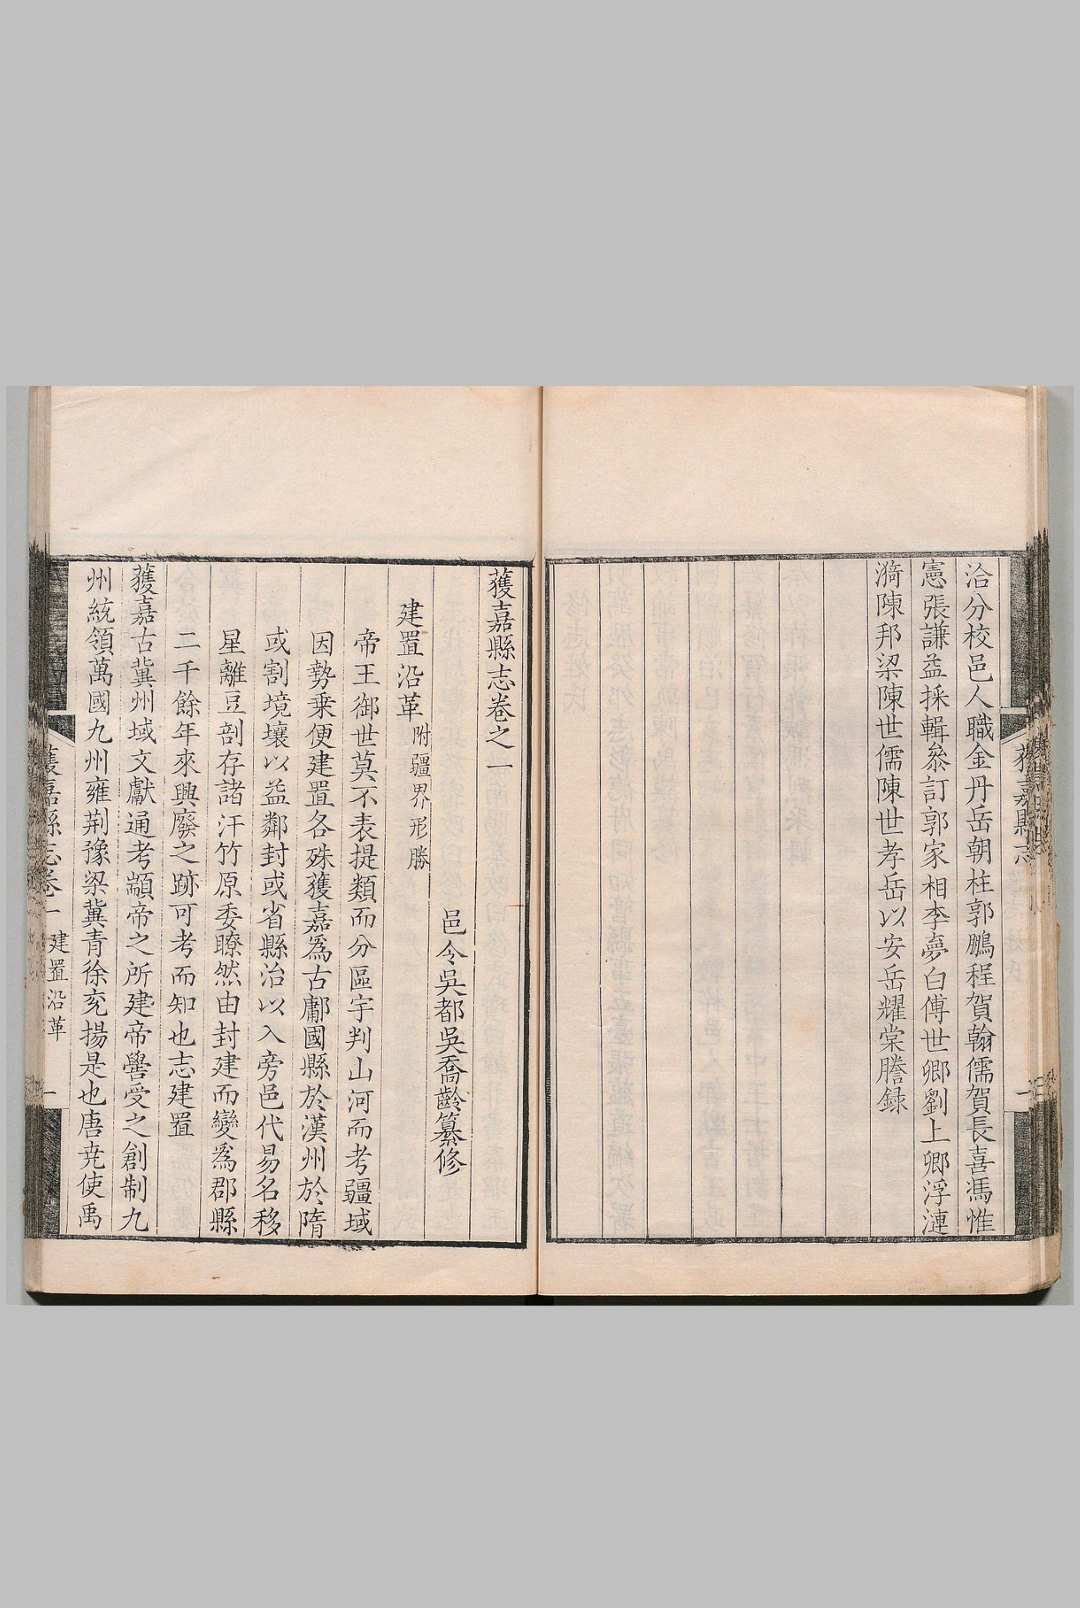 洽分校邑人職金丹岳朝柱郭鵬程賀翰儒賀長喜馮惟
憲張謙益採輯叅訂郭家相李夢白傅世卿劉上卿浮漣
漪陳邦梁陳世儒陳世孝岳以安岳耀棠謄録
獲嘉縣志卷之一
邑令吳都吳喬齡纂修
建置沿革附疆界形勝
帝王御世莫不表提類而分區宇判山河而考疆域
因勢乗便建置各殊獲嘉爲古鄘國縣於漢州於隋
或割境壤以益鄰封或省縣治以入旁邑代易名移
星離豆剖存諸汗竹原委瞭然由封建而變爲郡縣
二千餘年來興廢之跡可考而知也志建置
獲嘉古冀州域文獻通考顓帝之所建帝嚳受之創制九
州統領萬國九州雍荆豫梁冀青徐兖揚是也唐堯使禹
獲嘉縣志卷一
建置沿革
一